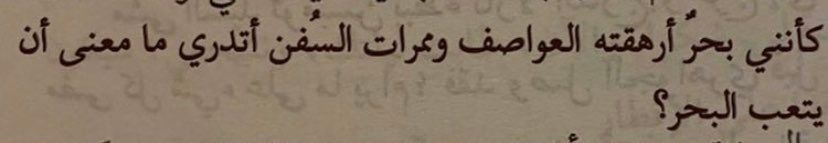 كأنني بحرٌ أرهقته العواصف وممرات السُفن أتدري ما معنى أن
يتعب البحر؟